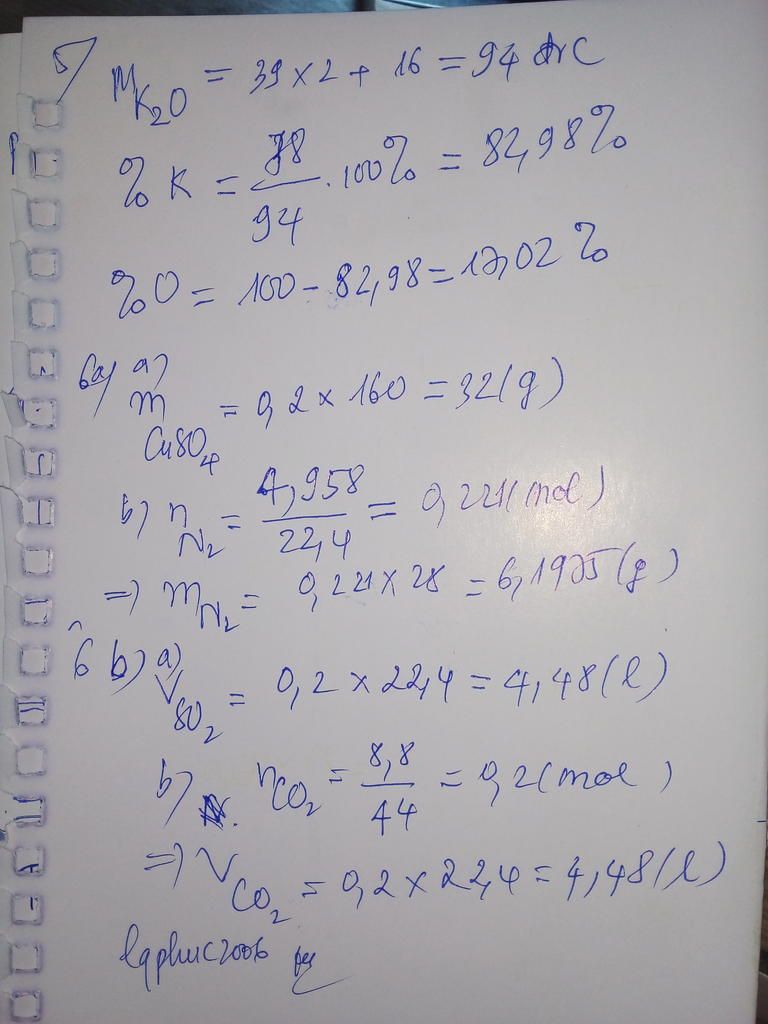 5/ M K₂O = 39 x 2 + 16 = 94 đvC
% K = 78/94 . 100% = 82,98%
% O = 100 - 82,98 = 17,02 %
6a) a) m CuSO₄ = 0,2 x 160 = 32 (g)
b) n N₂ = 4,958/22,4 = 0,221 (mol)
=> m N₂ = 0,221 x 28 = 6,1975 (g)
6 b) a) V SO₂ = 0,2 x 22,4 = 4,48 (l)
b) n CO₂ = 8,8/44 = 0,2 (mol)
=> V CO₂ = 0,2 x 22,4 = 4,48 (l)
lqphuc2006